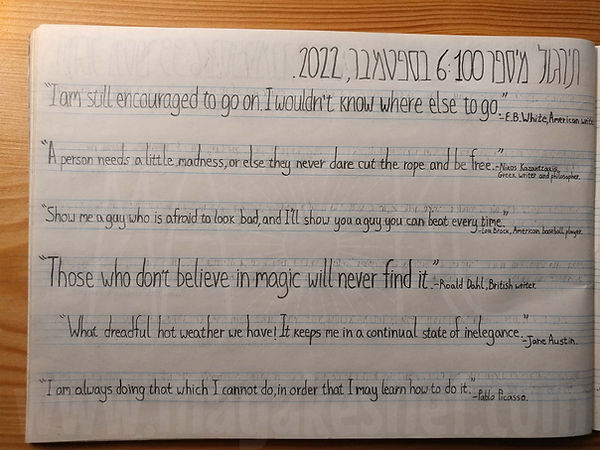 תירגול מיספר 100: 6 בספטמבר, 2022.
"I am still encouraged to go on. I wouldn't know where else to go."
-E.B. White, American writer.
"A person needs a little madness, or else they never dare cut the rope and be free."
-Nikos Kazantzakis,
Greek writer and philosopher.
"Show me a guy who is afraid to look bad, and I'll show you a guy you can beat every time."
-Lou Brock, American baseball player.
"Those who don't believe in magic will never find it." -Roald Dahl, British writer.
"What dreadful hot weather we have! It keeps me in a continual state of inelegance."
-Jane Austin.
"I am always doing that which I cannot do, in order that I may learn how to do it."
-Pablo Picasso.